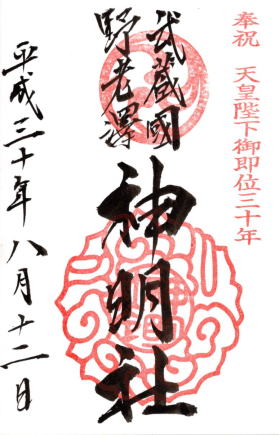 奉祝 天皇陛下御即位三十年
武蔵國
野老澤
神明社
平成三十年八月十二日